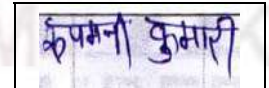 रूपमनी कुमारी